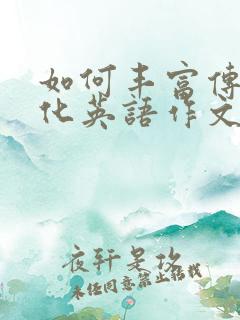 如何丰富傳
化英語作文
夜轩是攻
未经同意禁止转载